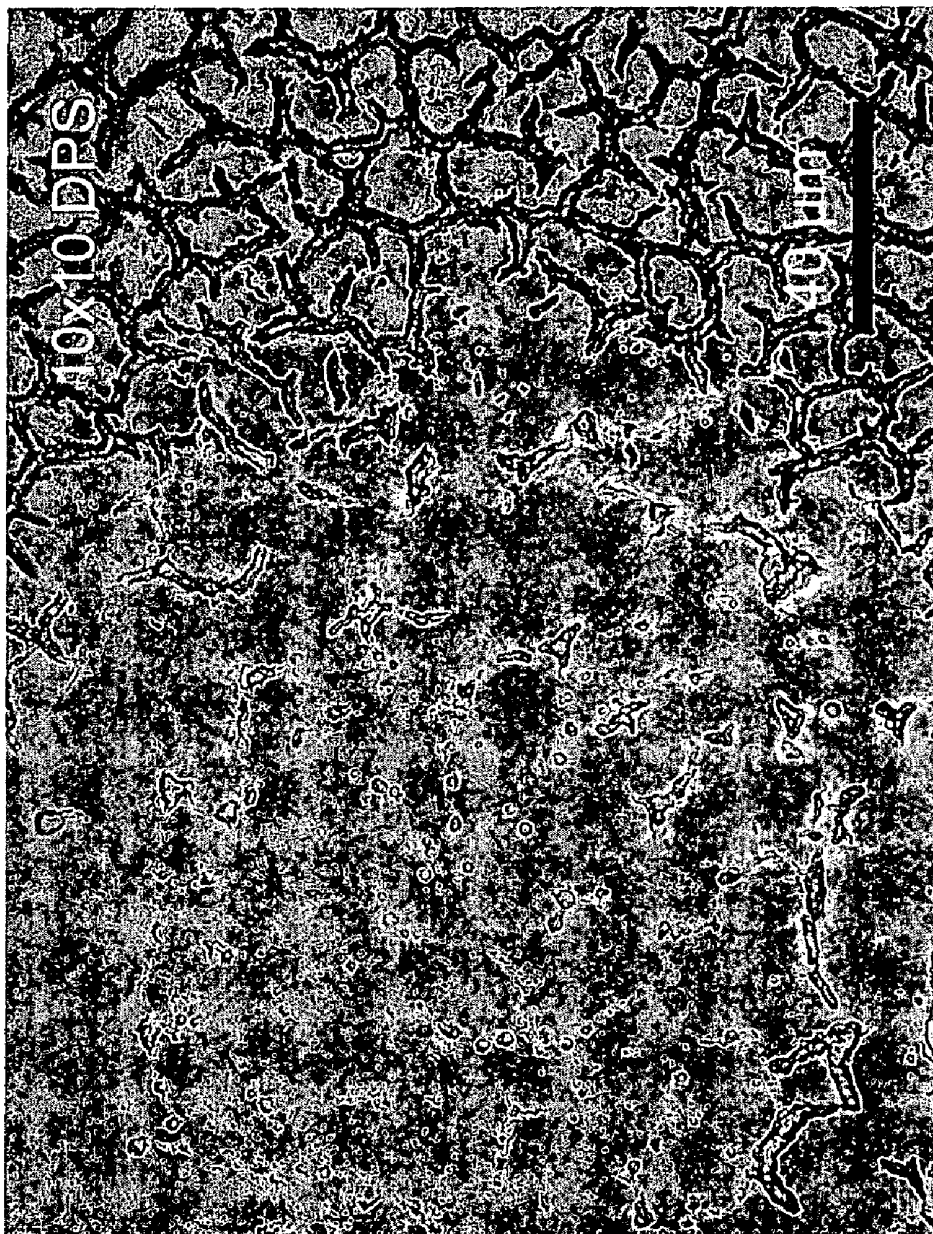 10x10.DPS
40 µm